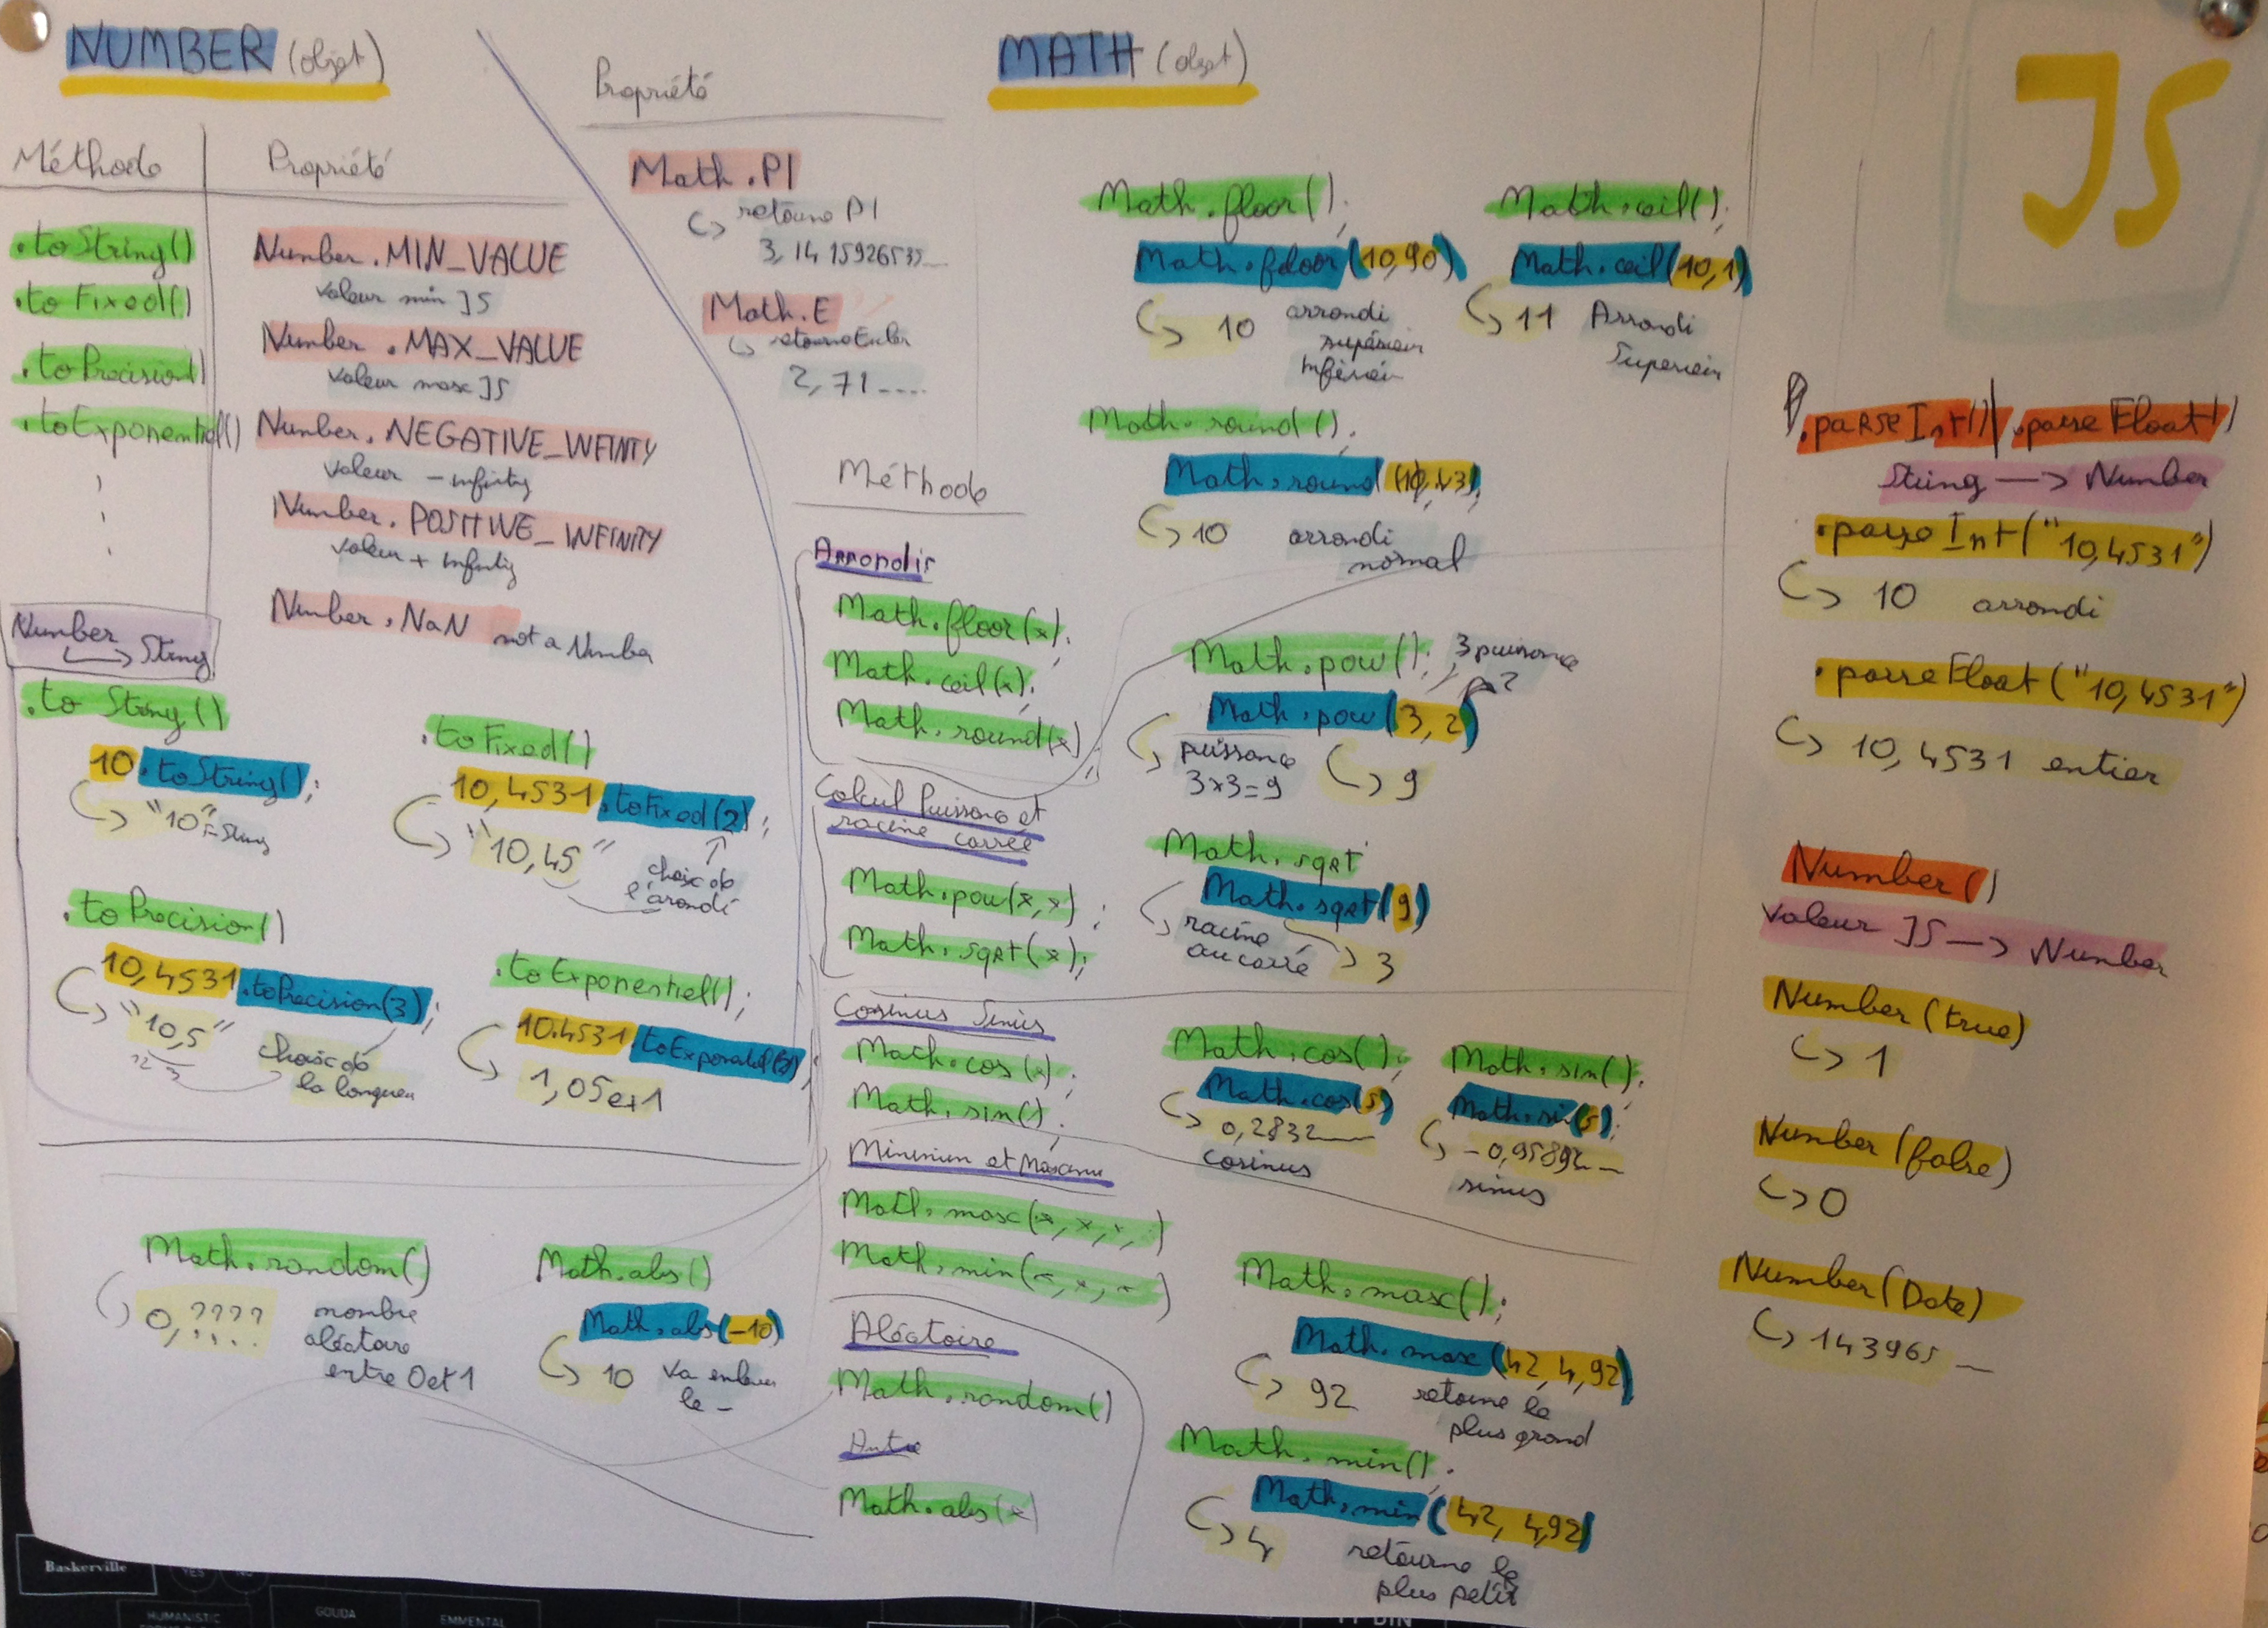 NUMBER (objet)
Méthode
Propriété
.toString()
.toFixed()
.toPrecision()
.toExponentiel()
Number.MIN_VALUE
valeur min JS
Number.MAX_VALUE
valeur max JS
Number.NEGATIVE_INFINITY
valeur - infinity
Number.POSITIVE_INFINITY
valeur + infinity
Number.NaN not a Number
Number
String
.toString()
10.toString();
"10" = String
.toFixed()
10,4531.toFixed(2);
"10,45"
choix de
l'arondi
.toPrecision()
10,4531.toPrecision(3);
"10,5"
1 2 3
choix de
la longueur
.toExponentiel();
10.4531.toExponentiel(2);
1,05e+1
Math.random()
0,????
nombre
aléatoire
entre 0 et 1
Math.abs()
Math.abs(-10)
10 va enlever
le -
MATH (objet)
Propriété
Math.PI
retourne PI
3,1415926535...
Math.E
retourne Euler
2,71....
Méthode
Arrondir
Math.floor(x);
Math.ceil(x);
Math.round(x);
Calcul Puissance et
racine carrée
Math.pow(x,x);
Math.sqrt(x);
Cosinus Sinus
Math.cos(x);
Math.sin();
Minimum et Maximum
Math.max(x,x,x,.)
Math.min(x,x,x)
Aléatoire
Math.random()
Autre
Math.abs(x)
Math.floor();
Math.floor(10,90)
10 arrondi
supérieur
Inférieur
Math.ceil();
Math.ceil(10,1)
11 Arrondi
Superieur
Math.round();
Math.round(10,43);
10 arrondi
normal
Math.pow();
3 puissance
2
Math.pow(3,2)
puissance
3x3=9
9
Math.sqrt
Math.sqrt(9)
racine
au carré
3
Math.cos();
Math.cos(5)
0,2832...
cosinus
Math.sin();
Math.sin(5);
-0,95892...
sinus
Math.max();
Math.max(42,4,92)
92 retourne le
plus grand
Math.min();
Math.min(42,4,92)
4 retourne le
plus petit
JS
.parseInt() | .parseFloat()
String -> Number
.parseInt("10,4531")
10 arrondi
.parseFloat("10,4531")
10,4531 entier
Number()
Valeur JS -> Number
Number(true)
1
Number(false)
0
Number(Date)
143965...
Baskerville
YES
NO
HUMANISTIC
GOUDA
EMMENTAL
DIN